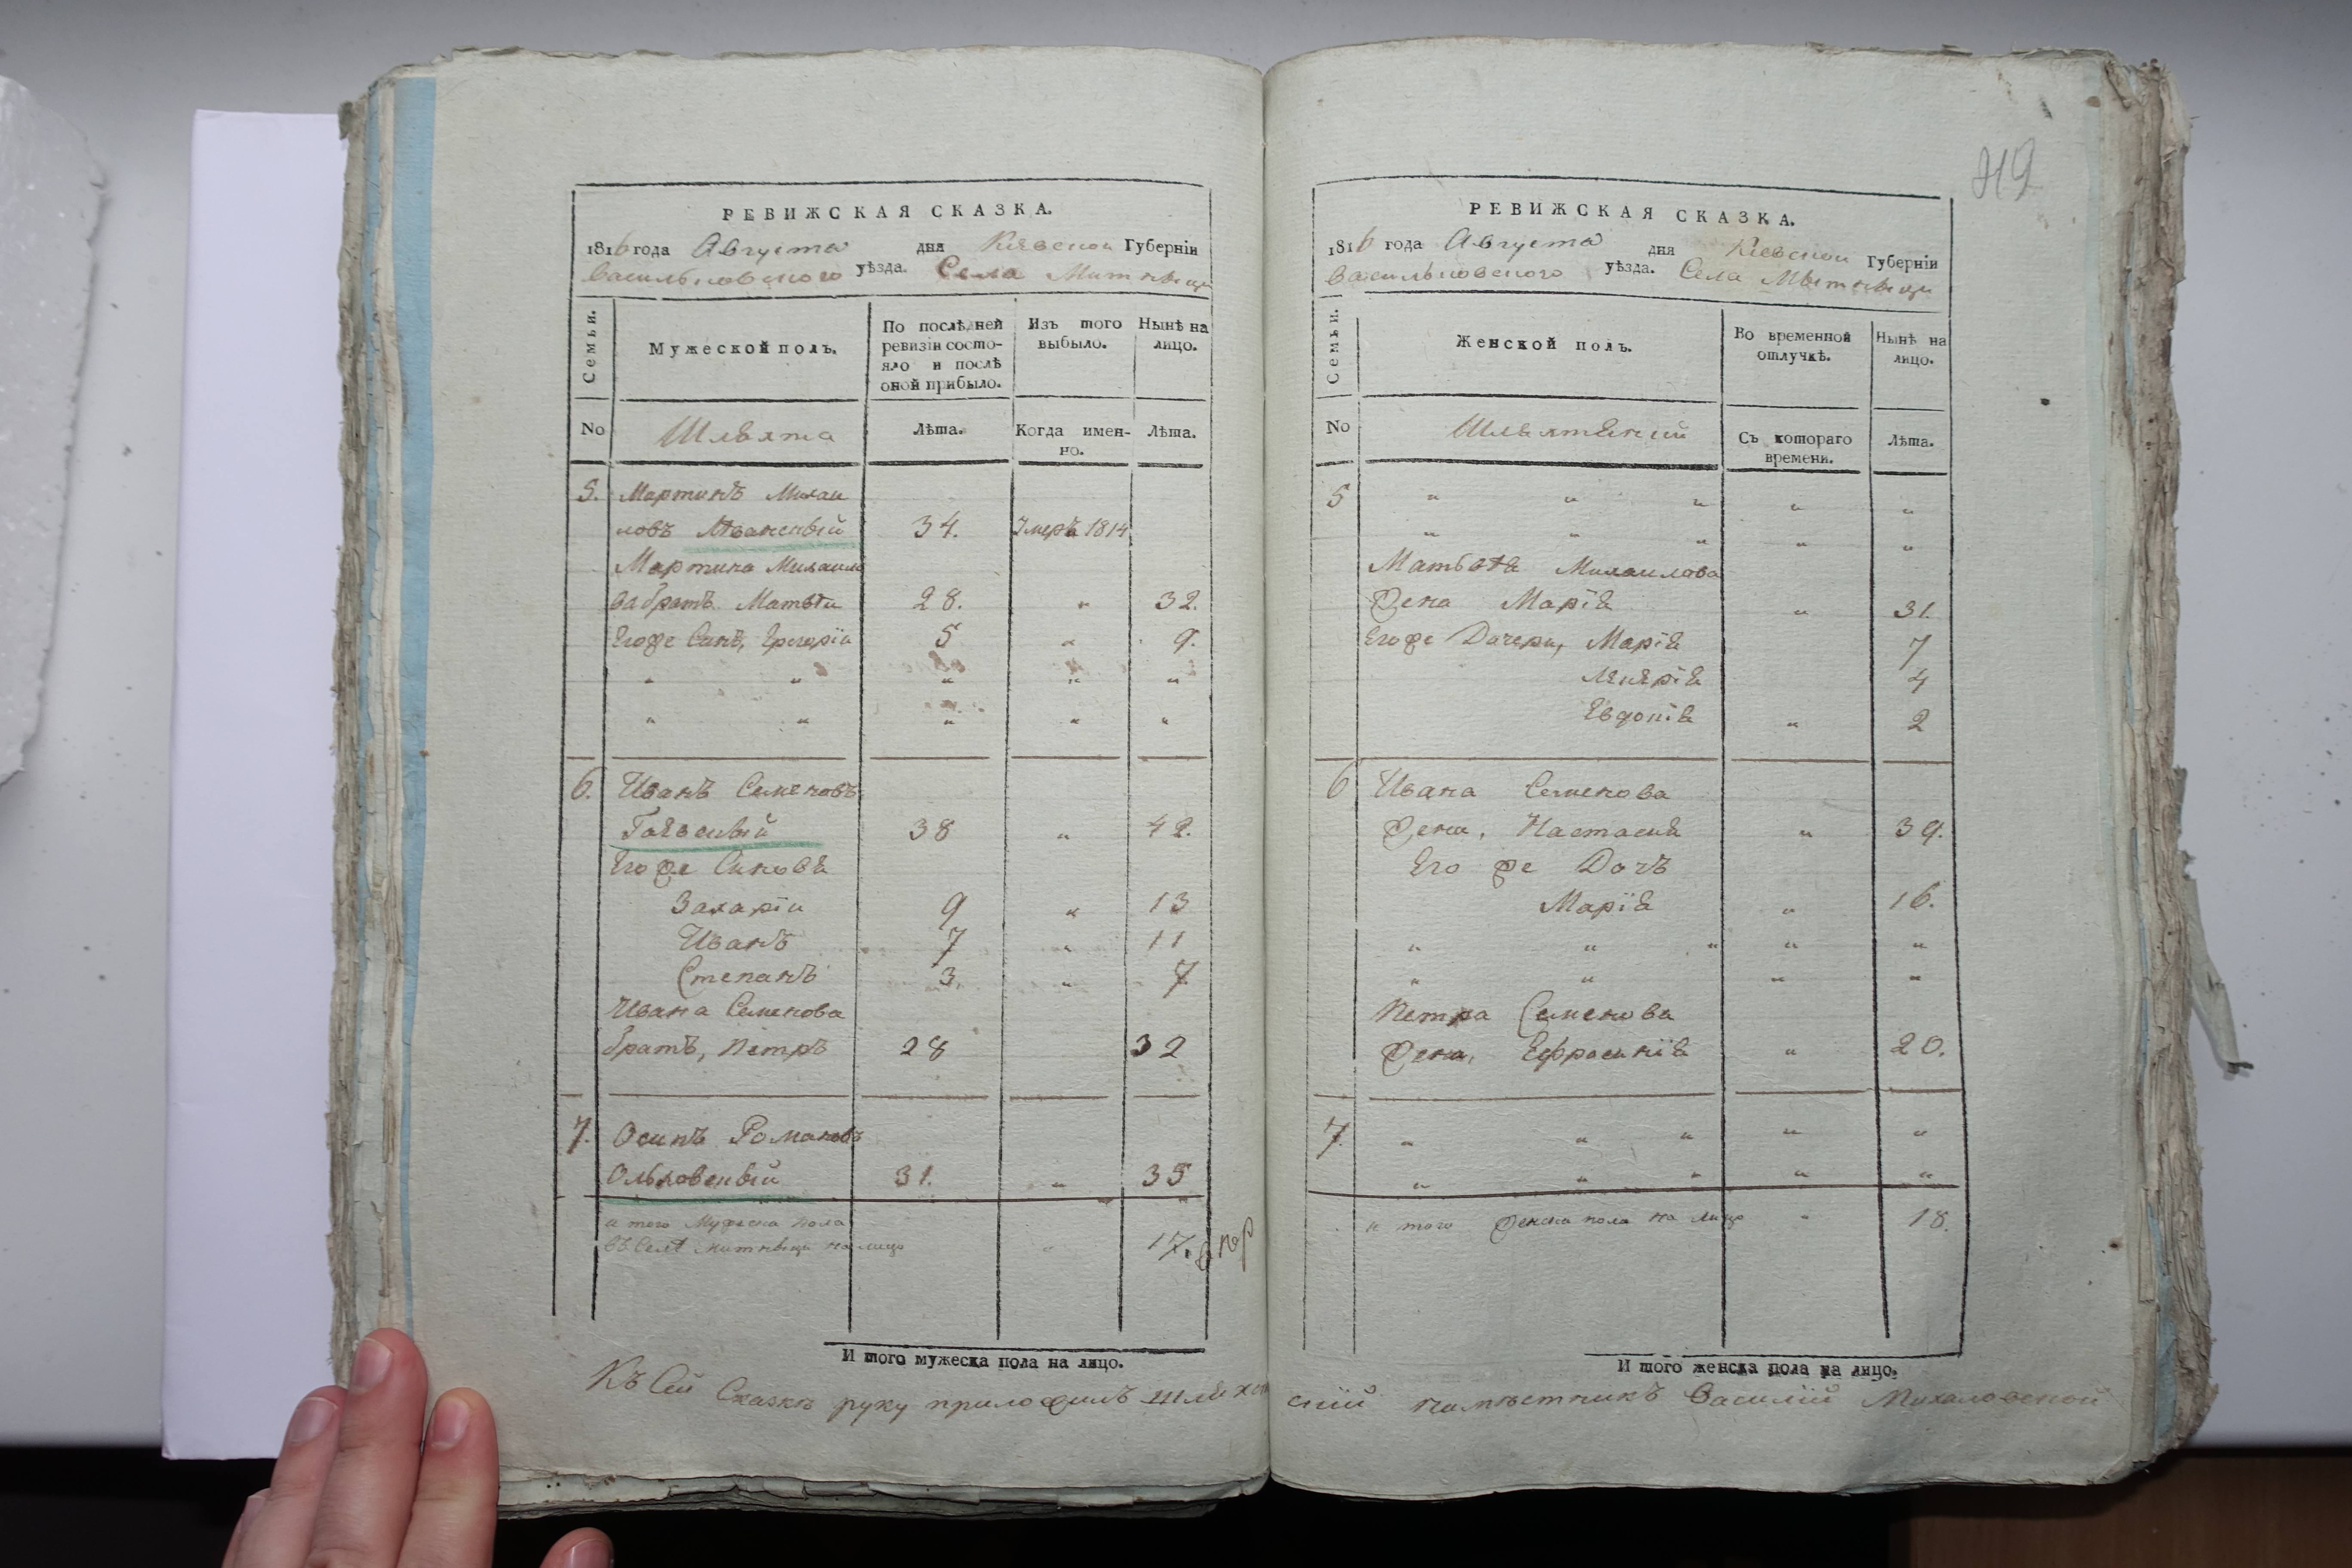 РЕВИЖСКАЯ СКАЗКА.
1816 года Августа дня Кіевской Губерніи
Васильковского уѣзда. Села Митницы
Семьи.
Мужеской полъ.
По послѣдней ревизіи состояло и послѣ оной прибыло.
Изъ того выбыло.
Нынѣ на лицо.
No Шляхта Лѣта. Когда именно. Лѣта.
5. Мартинъ Михаи
ловъ 34. Умеръ 1814
Мартина Михаило
ва братъ Матвѣи 28. " 32.
Егоже Синъ, Григоріи 5 " 9.
" " " " "
" " " " "
6. Иванъ Семеновъ
Гаевскый 38 " 42.
Его же Синовя
Захаріи 9 " 13
Иванъ 7 " 11
Степанъ 3. " 7
Ивана Семенова
братъ, Петръ 28 32
7. Осипъ Романовъ
Ольховскый 31. " 35
и того Мужеска пола
въ Селѣ Митницы на лицо " 17.
И того мужеска пола на лицо.
419
РЕВИЖСКАЯ СКАЗКА.
1816 года Августа дня Кіевской Губерніи
Васильковского уѣзда. Села Митницы
Семьи.
Женской полъ.
Во временной отлучкѣ.
Нынѣ на лицо.
No Шляхтянкій Съ котораго времени. Лѣта.
5 " " " " "
" " " " "
Матвѣя Михаилова
Жена Марія " 31.
Егоже Дочери, Марія 7
4
Евдокія " 2
6 Ивана Семенова
Жена, Настасия " 39.
Его же Дочъ
Марія " 16.
" " " " "
" " " "
Петра Семенова
Жена, Ефросинія " 20.
7. " " " " "
" " " " "
и того женска пола на лицо " 18.
И того женска пола на лицо.
Къ Сей Сказкѣ руку приложилъ шляхетскій намѣстникъ Василій Михаловской